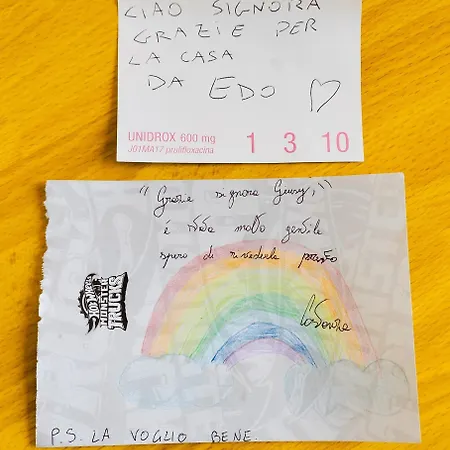 CIAO SIGNORA
GRAZIE PER
LA CASA
DA EDO
UNIDROX 600 mg
J01MA17 prulifloxacina
1 3 10
"Grazie signora Giusy,"
è stata molto gentile
spero di rivederla presto
HOT WHEELS
MONSTER
TRUCKS
P.S. LA VOGLIO BENE.